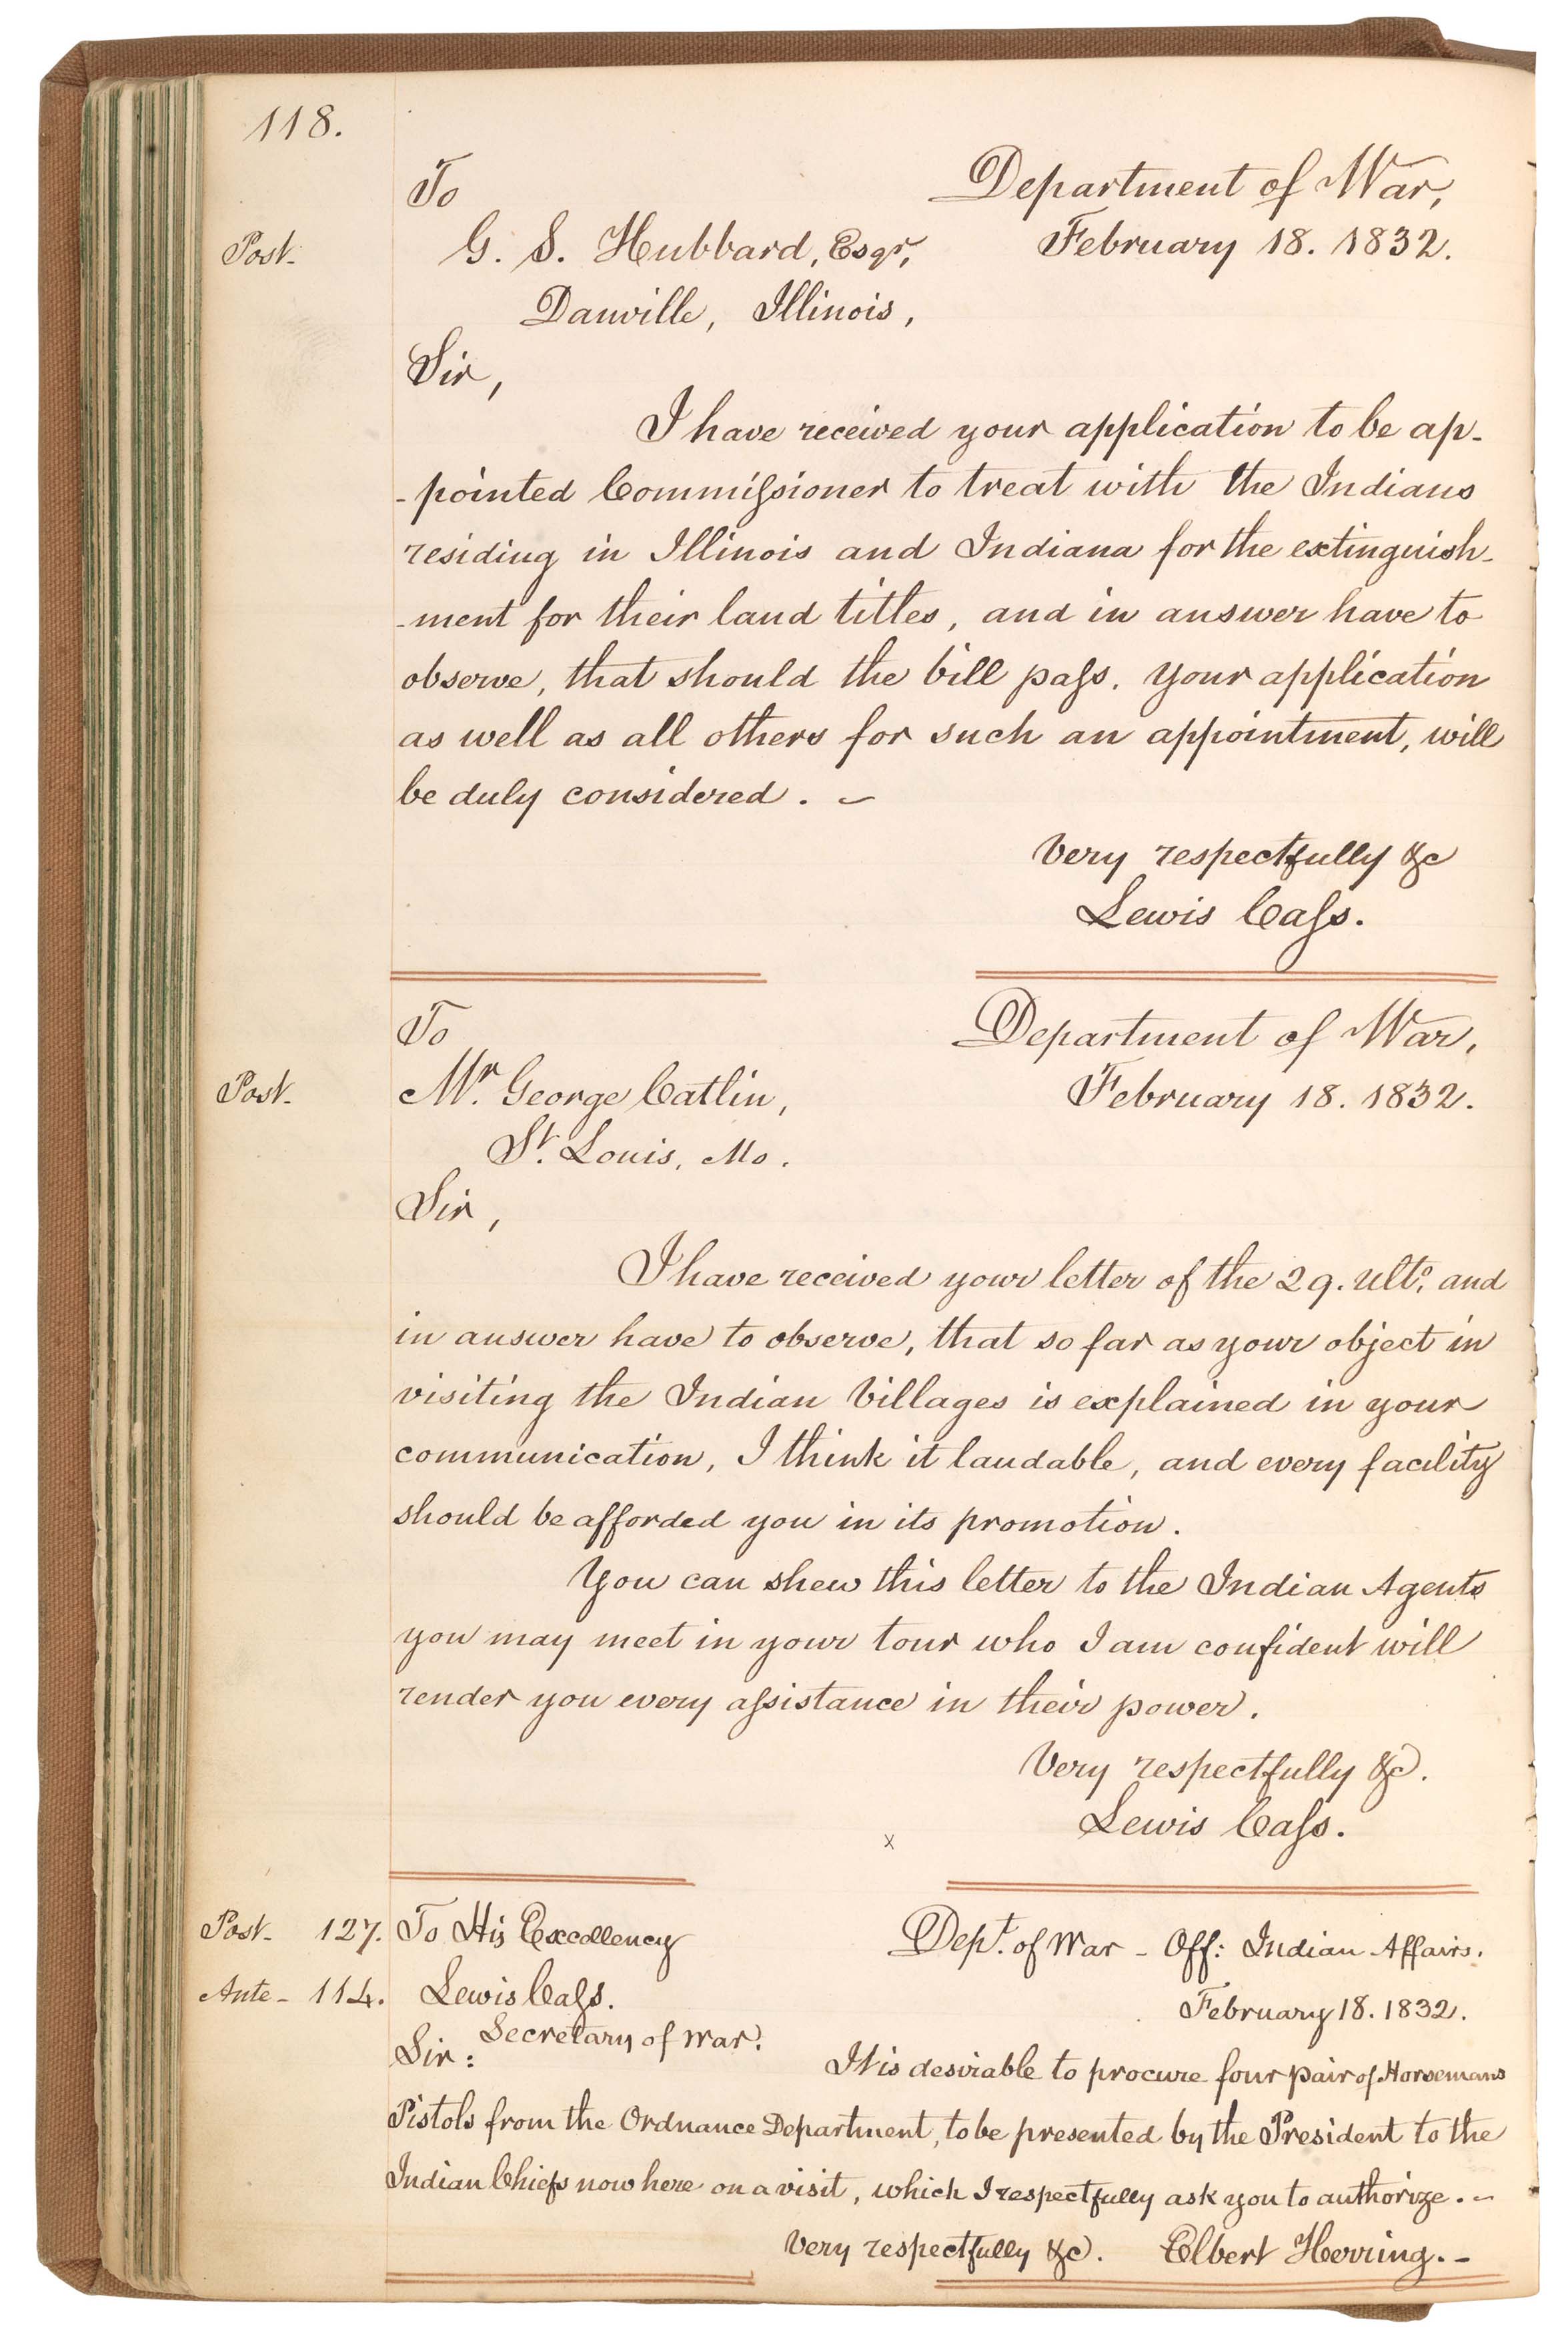 118.
To
Department of War,
Post.
G. S. Hubbard, Esqr,
February 18. 1832.
Danville, Illinois,
Sir,
I have received your application to be ap-
-pointed Commiſsioner to treat with the Indians
residing in Illinois and Indiana for the extinguish-
-ment for their land titles, and in answer have to
observe, that should the bill paſs. your application
as well as all others for such an appointment, will
be duly considered. ~
Very respectfully &c
Lewis Caſs.
To
Department of War,
Post.
Mr. George Catlin,
February 18. 1832.
St. Louis, Mo.
Sir,
I have received your letter of the 29. ulto, and
in answer have to observe, that so far as your object in
visiting the Indian Villages is explained in your
communication, I think it laudable, and every facility
should be afforded you in its promotion.
You can shew this letter to the Indian Agents
you may meet in your tour who I am confident will
render you every aſsistance in their power.
Very respectfully &c.
Lewis Caſs.
x
Post- 127. To His Excellency
Dept. of War - Off: Indian Affairs.
Ante- 114. Lewis Caſs.
February 18. 1832.
Secretary of War.
Sir:
It is desirable to procure four pair of Horsemans
Pistols from the Ordnance Department, to be presented by the President to the
Indian Chiefs now here on a visit, which I respectfully ask you to authorize. ~
Very respectfully &c. Elbert Herring. -